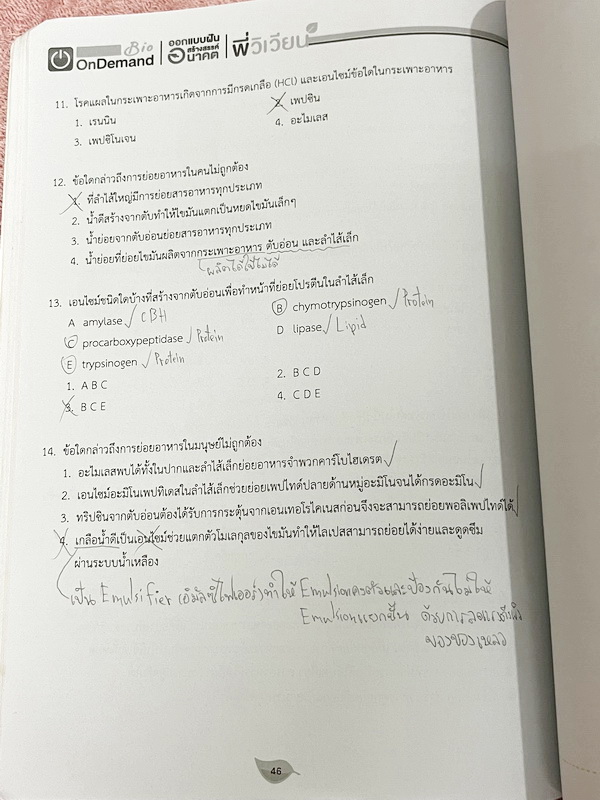 Bio
OnDemand ออกแบบฝัน สร้างสรรค์ อนาคต พี่วิเวียน
11. โรคแผลในกระเพาะอาหารเกิดจากการมีกรดเกลือ (HCl) และเอนไซม์ข้อใดในกระเพาะอาหาร
1. เรนนิน 2. เพปซิน
3. เพปซิโนเจน 4. อะไมเลส
12. ข้อใดกล่าวถึงการย่อยอาหารในคนไม่ถูกต้อง
1. ที่ลำไส้ใหญ่มีการย่อยสารอาหารทุกประเภท
2. น้ำดีสร้างจากตับทำให้ไขมันแตกเป็นหยดไขมันเล็กๆ
3. น้ำย่อยจากตับอ่อนย่อยสารอาหารทุกประเภท
4. น้ำย่อยที่ย่อยไขมันผลิตจากกระเพาะอาหาร ตับอ่อน และลำไส้เล็ก
ผลิตได้ใช้ไม่ได้
13. เอนไซม์ชนิดใดบ้างที่สร้างจากตับอ่อนเพื่อทำหน้าที่ย่อยโปรตีนในลำไส้เล็ก
A amylase CBH B chymotrypsinogen Protein
C procarboxypeptidase Protein D lipase Lipid
E trypsinogen Protein
1. A B C 2. B C D
3. B C E 4. C D E
14. ข้อใดกล่าวถึงการย่อยอาหารในมนุษย์ไม่ถูกต้อง
1. อะไมเลสพบได้ทั้งในปากและลำไส้เล็กย่อยอาหารจำพวกคาร์โบไฮเดรต
2. เอนไซม์อะมิโนเพปทิเดสในลำไส้เล็กช่วยย่อยเพปไทด์ปลายด้านหมู่อะมิโนจนได้กรดอะมิโน
3. ทริปซินจากตับอ่อนต้องได้รับการกระตุ้นจากเอนเทอโรไคเนสก่อนจึงจะสามารถย่อยพอลิเพปไทด์ได้
4. เกลือน้ำดีเป็นเอนไซม์ช่วยแตกตัวโมเลกุลของไขมันทำให้ไลเปสสามารถย่อยได้ง่ายและดูดซึม
ผ่านระบบน้ำเหลือง
เป็น Emulsifier (อิมัลซิไฟเออร์) ทำให้ Emulsion คงตัวและป้องกันไม่ให้
Emulsion แยกชั้น ด้วยการลดแรงตึงผิว
ของของเหลว
46